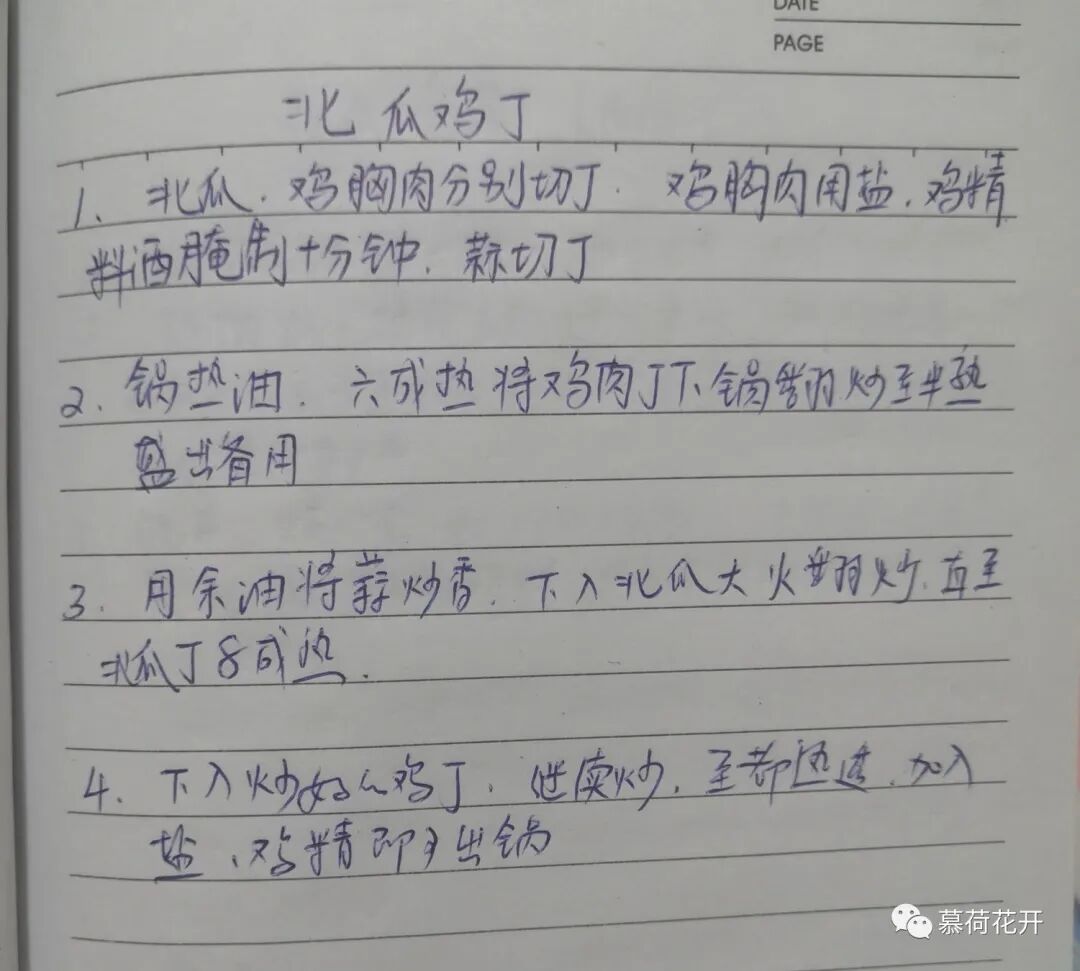 DATE
PAGE
北瓜鸡丁
1、北瓜、鸡胸肉分别切丁. 鸡胸肉用盐、鸡精
料酒腌制十分钟. 蒜切丁
2、锅热油. 六成热将鸡肉丁下锅翻炒至半熟
盛出备用
3、用余油将蒜炒香. 下入北瓜大火翻炒. 直至
北瓜丁8成熟.
4、下入炒好的鸡丁. 继续炒. 至都熟透. 加入
盐、鸡精即可出锅
慕荷花开